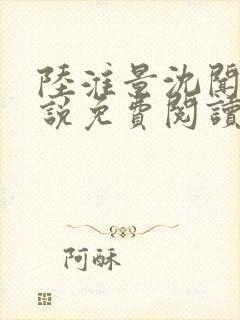 陸淮景沈聞
說免費閱讀
阿酥